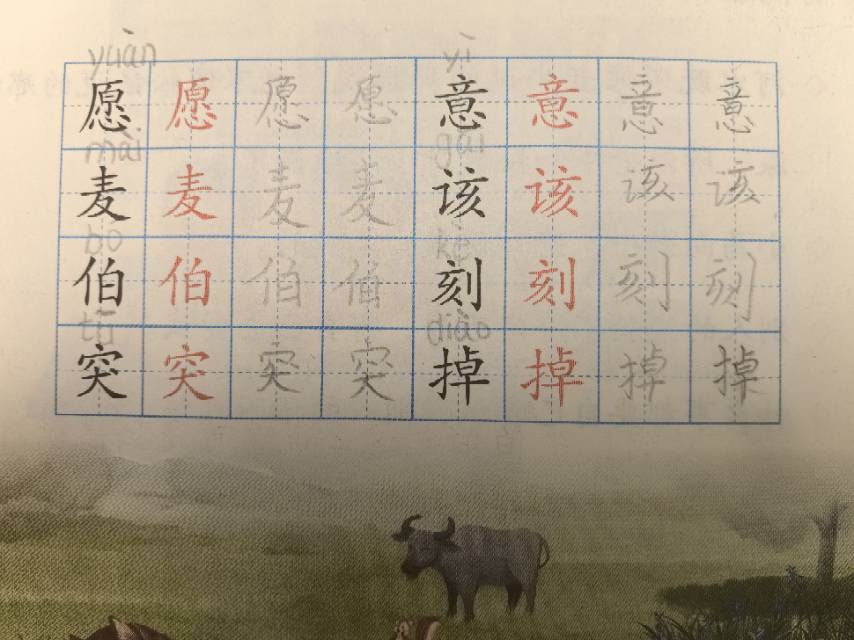 yuàn yì
愿愿愿愿意意意意
mài gāi
麦麦麦麦该该该该
bó kè
伯伯伯伯刻刻刻刻
tū diào
突突突突掉掉掉掉